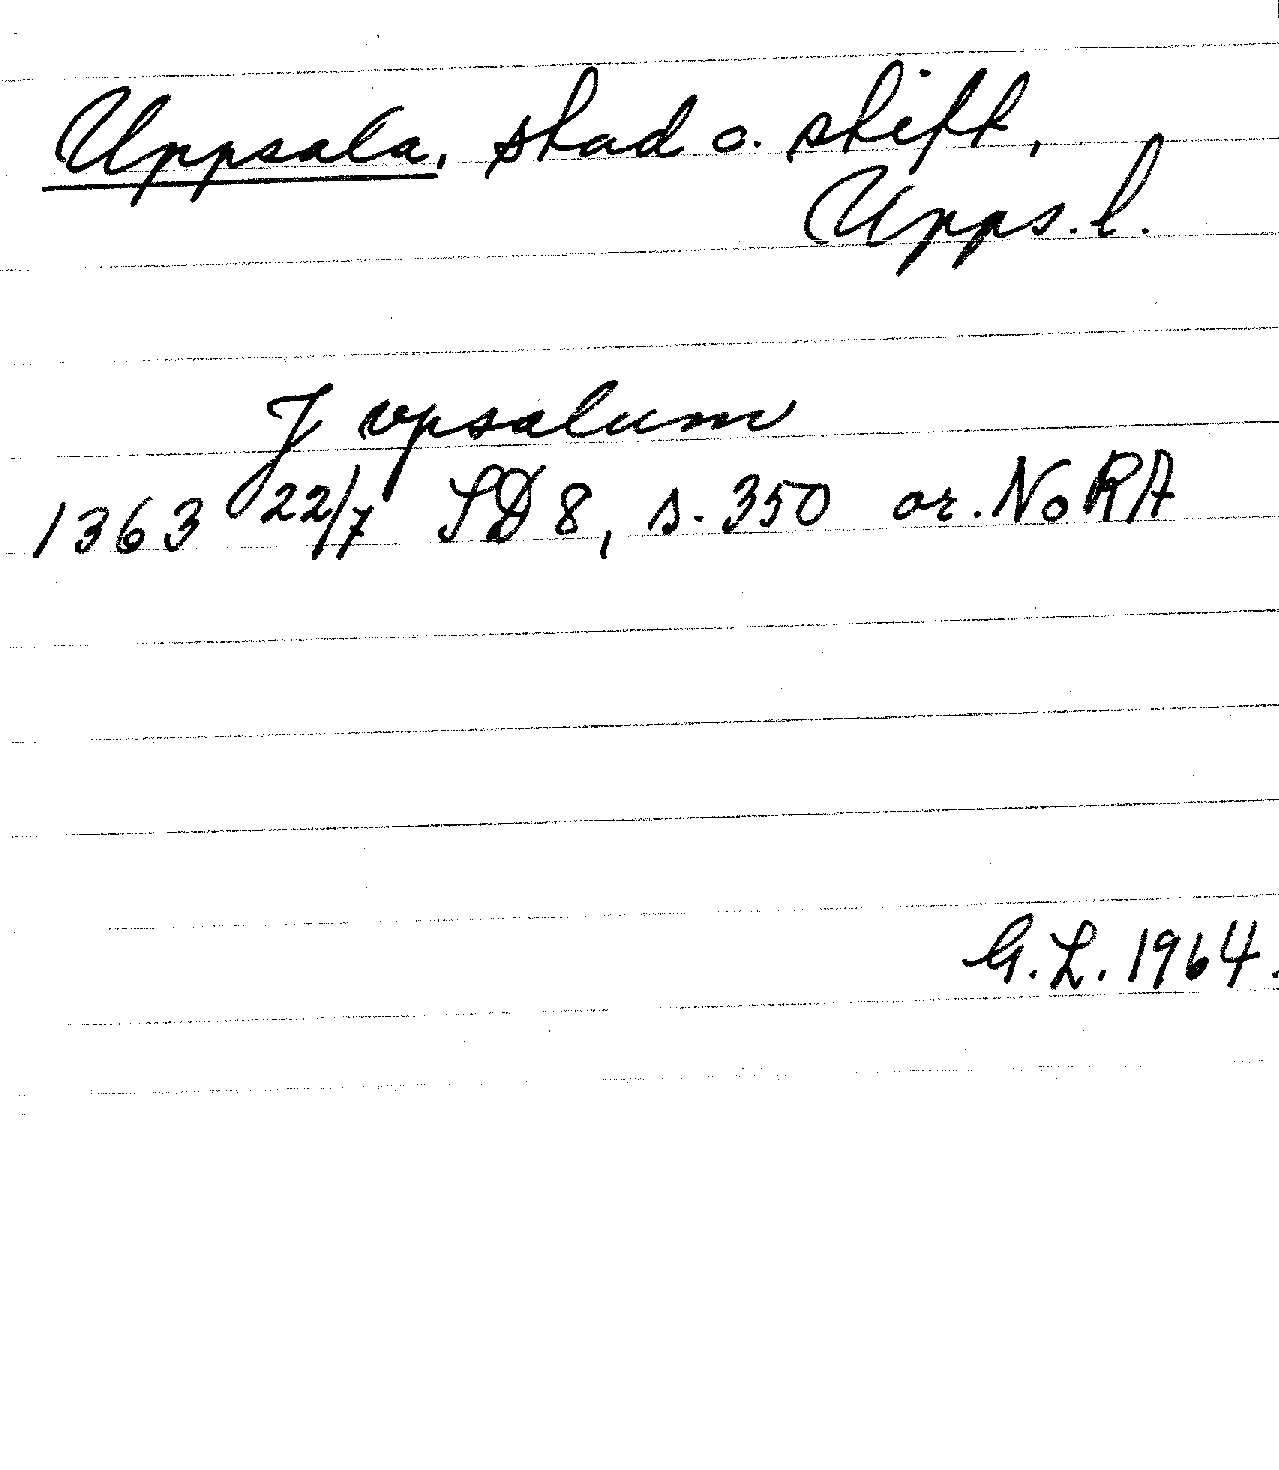 Uppsala, stad o. stift,
Upps. l.
J vpsalum
1363 22/7 SD 8, s. 350 or. NoRA
G. L. 1964.